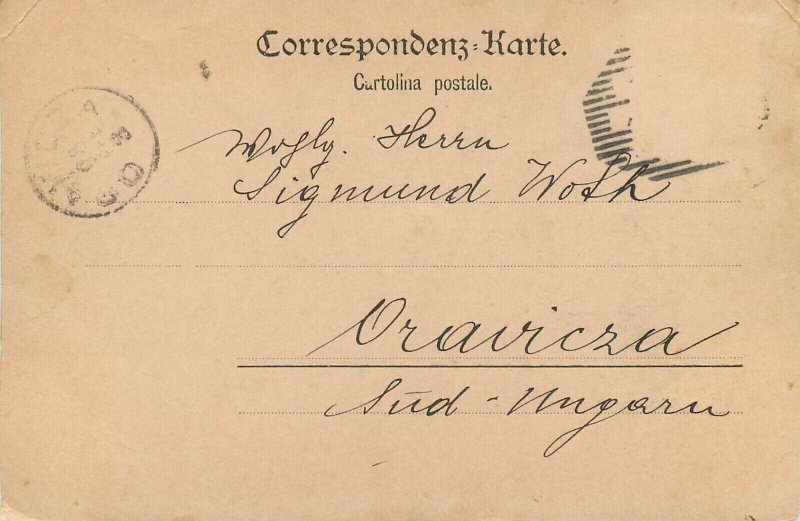 Correspondenz-Karte.
Cartolina postale.
Wohlg. Herrn
Sigmund Woth
Oravicza
Süd-Ungarn